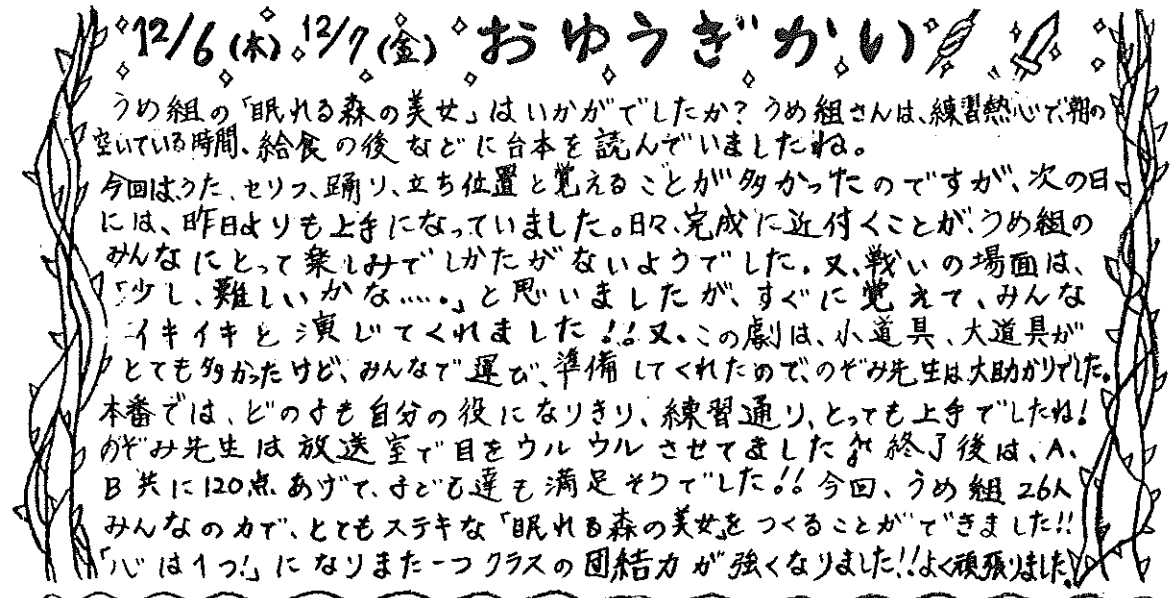 12/6(木) 12/7(金) おゆうぎかい
うめ組の「眠れる森の美女」はいかがでしたか？うめ組さんは、練習熱心で、朝の
空いている時間、給食の後などに台本を読んでいましたね。
今回は、うた、セリフ、踊り、立ち位置と覚えることが多かったのですが、次の日
には、昨日よりも上手になっていました。日々、完成に近付くことが、うめ組の
みんなにとって楽しみでしかたがないようでした。又、戦いの場面は、
「少し、難しいかな……。」と思いましたが、すぐに覚えて、みんな
イキイキと演じてくれました!!又、この劇は、小道具、大道具が
とても多かったけど、みんなで運び、準備してくれたので、のぞみ先生は大助かりでした。
本番では、どの子も自分の役になりきり、練習通り、とっても上手でしたね!
のぞみ先生は放送室で目をウルウルさせてました 終了後は、A、
B共に120点あげて、子ども達も満足そうでした!!今回、うめ組26人
みんなの力で、とてもステキな「眠れる森の美女」をつくることができました!!
「心は1つ!」になりまた一つクラスの団結力が強くなりました!!よく頑張りました。